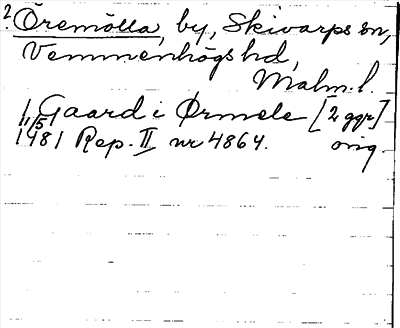 ? Öremölla, by, Skivarps sn,
Vemmenhögs hd,
Malm. l.
1 Gaard i Ørmele [2 ggr]
11/5
1481 Rep. II nr 4864. orig.